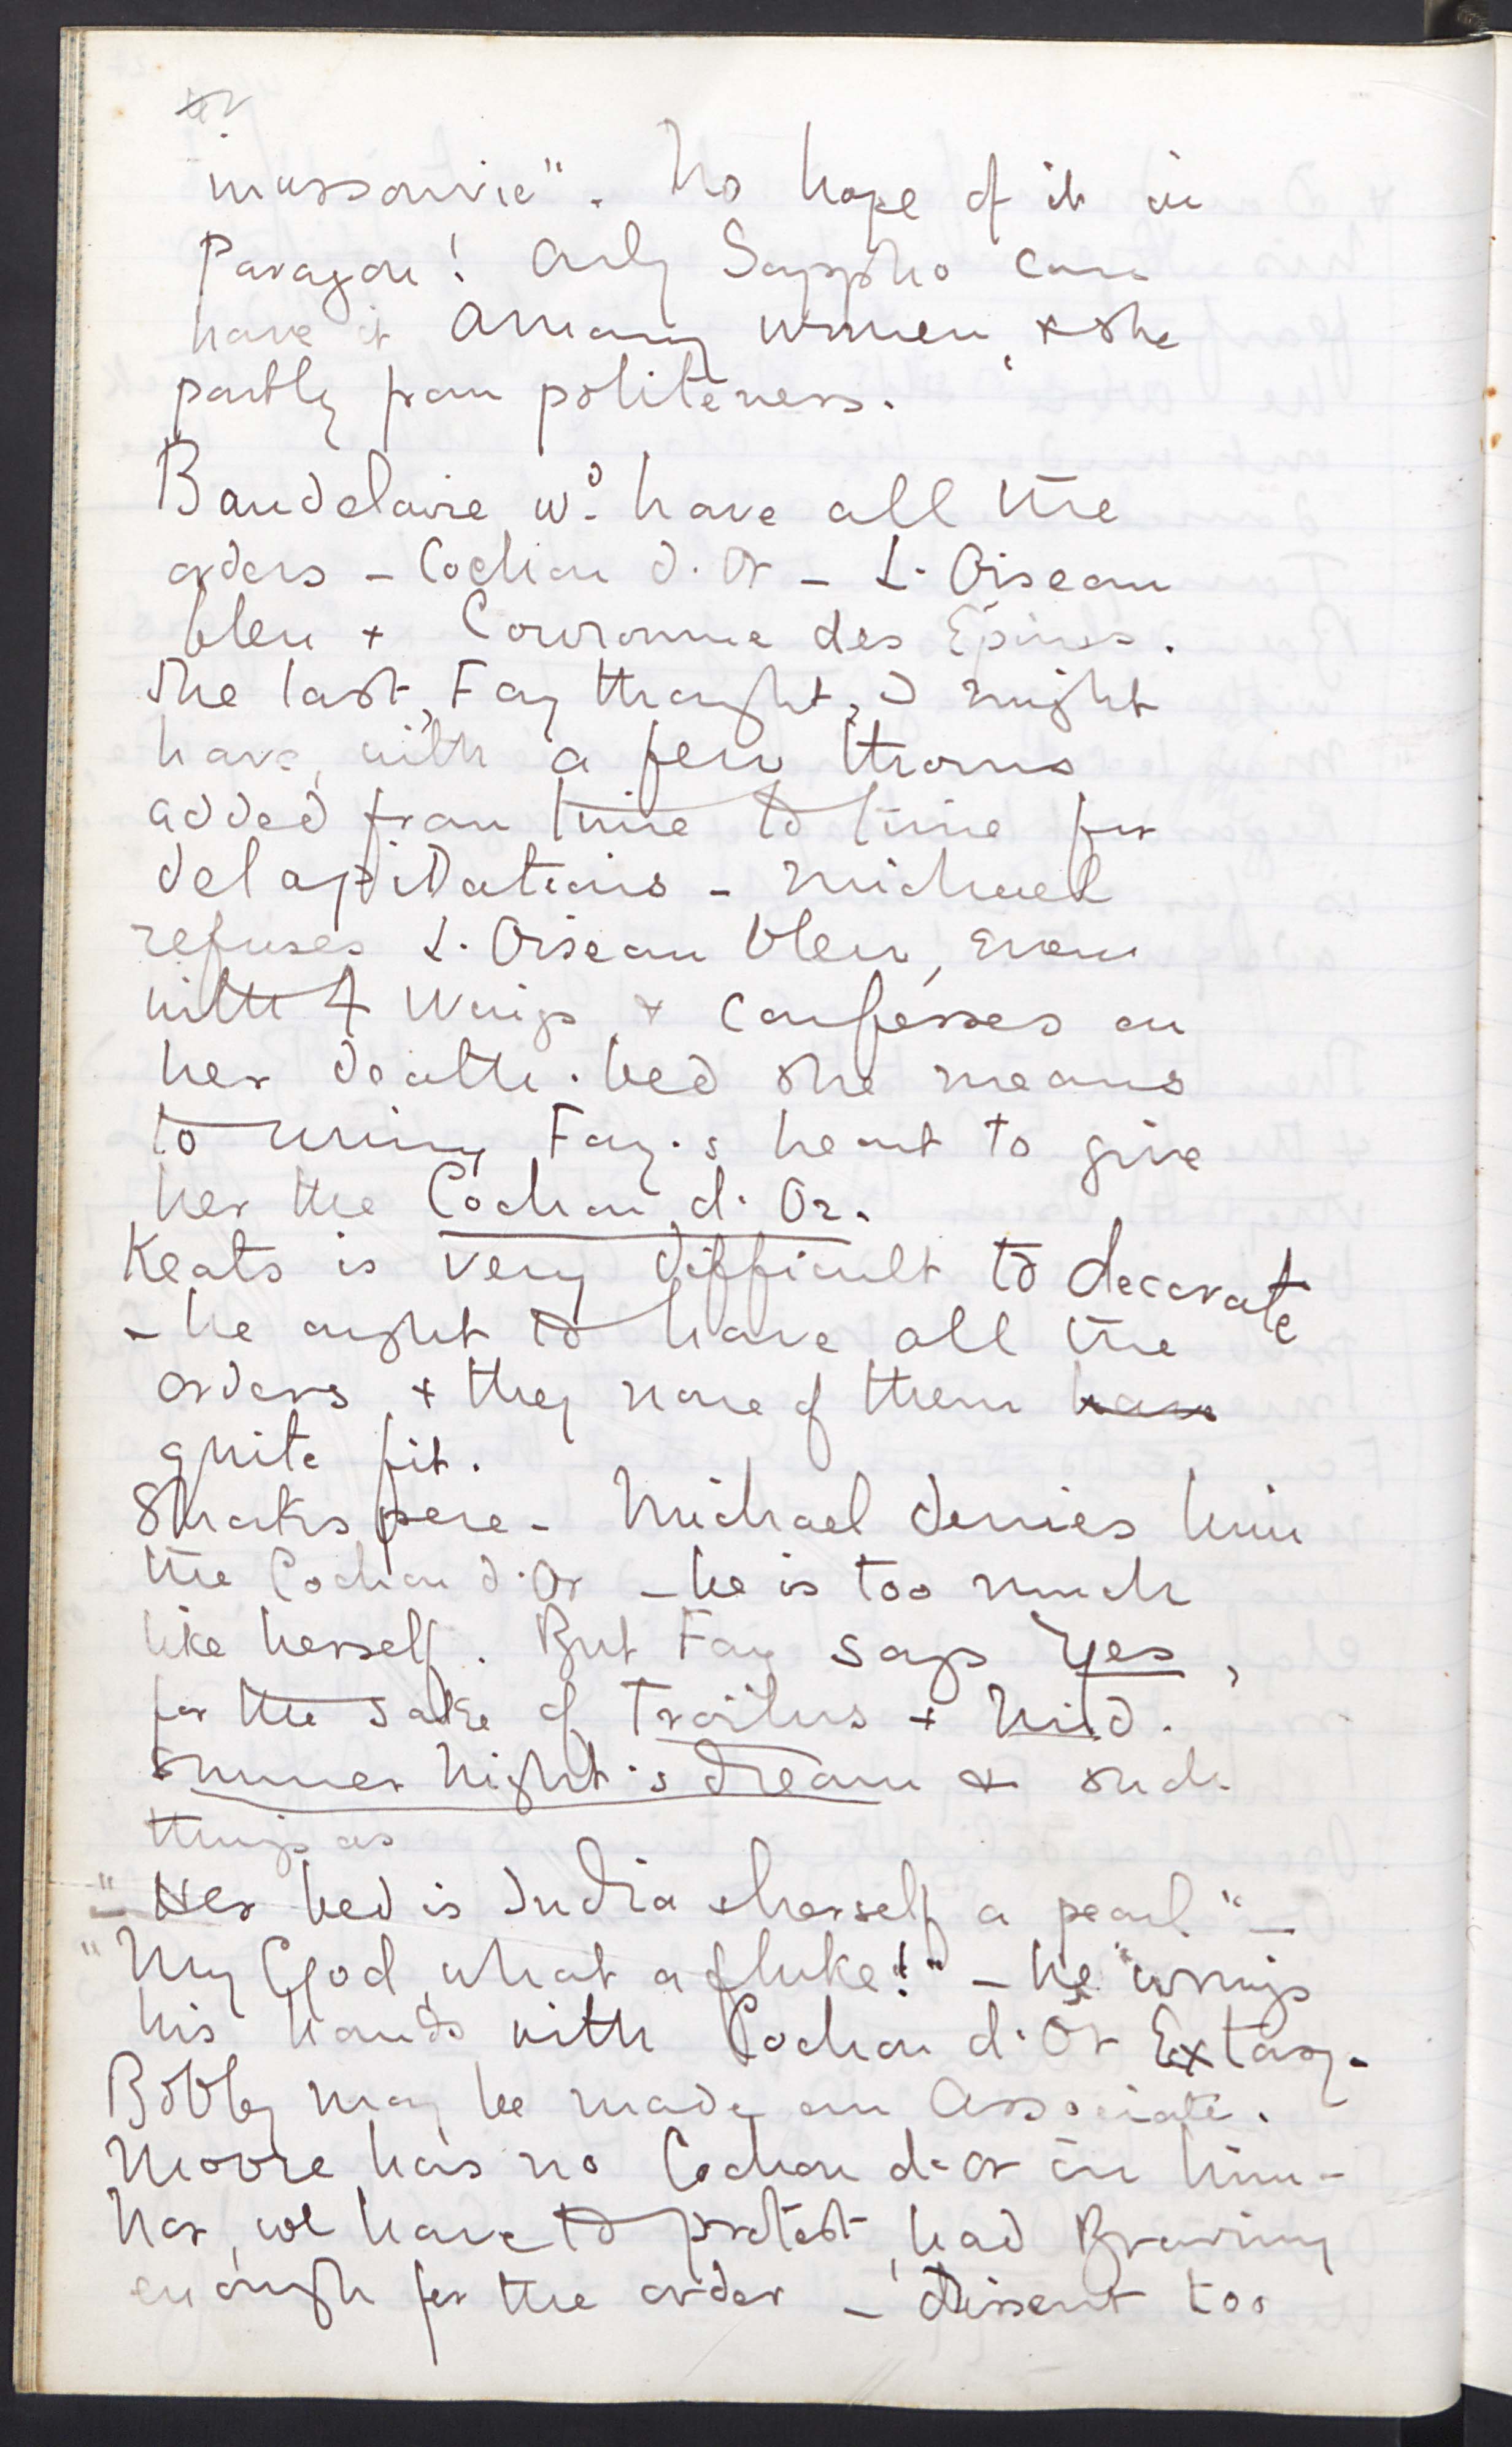 ". No hope of it in
Paragon! Only Sappho can
have it among women, & she
partly from politeness.
Baudelaire wd have all the
orders – Cochon d'Or – L'Oiseau
bleu & Couronne des Épines.
The last, Fay thought, I might
have, with a few thorns
added from time to time for
delapidations – Michael
refuses L'Oiseau bleu, even
with 4 wings & confesses on
her death-bed she means
to wring Fay's heart to give
her the Cochon d'Or.
Keats is very difficult to decorate
– he ought to have all the
orders & they none of them have
quite fit.
Shakspere – Michael denies him
the Cochon d'Or – he is too much
like herself. But Fay says Yes,
for the sake of Troilus & Mid.
summer Night's dream & such
things as
"Her bed is India & herself a pearl" –
"My God, what a fluke!" – he wrings
his hands with Cochon d'Or Extasy.
Bobbly may be made an Associate.
Moore has no Cochon d'Or in him –
Nor, we have to protest, had Browning
enough for the order – dissent too